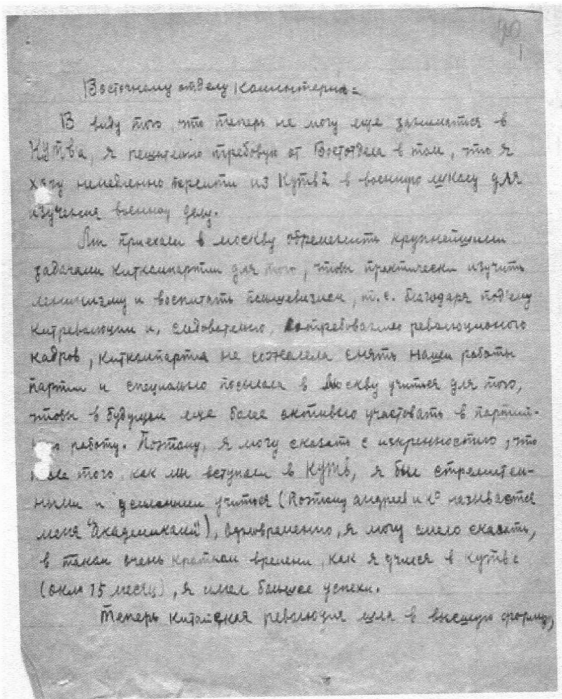 90
1
Восточному отделу Коминтерна:
В виду того, что теперь не могу еще заниматься в
КУТВа, я решительно требовую от Востотдела в том, что я
хочу немедленно перейти из Кутва в военную школу для
изучения военног делу.
Мы приехали в москву обременить крупнейшими
задачами киткомпартии для того, чтобы практически изучить
ленинизму и воспитать большевизмом, т.е. благодаря под'ему
китреволюции и, следовательно, потребовалию революционого
кадров, киткомпартия не сожалела снять нашей работы
партии и специально посылала в Москву учиться для того,
чтобы в будущем еще более активно участвовать в партий-
работу. Поэтому, я могу сказать с искренностию, что
того, как мы вступаем в КУТВ, я был стремитен-
ными и учиться (Поэтому андреев и К° называется
меня "Академиками"), одновременно, я могу смело сказать,
в таком очень кратком времени, как я учился в кутва
(около 15 месяц), я имел большое успехи.
Теперь китайская революция шла в высшую форму,